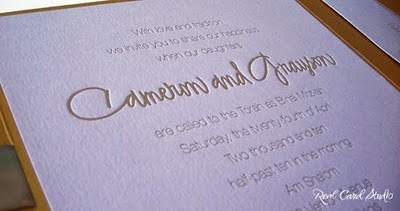 With love and tradition
we invite you to share our happiness
when our daughters
Cameron and Grayson
are called to the Torah as B'nai Mitzvah
Saturday, the twenty fourth of April
Two thousand and ten
half past ten in the morning
Am Shalom
Real Card Studio